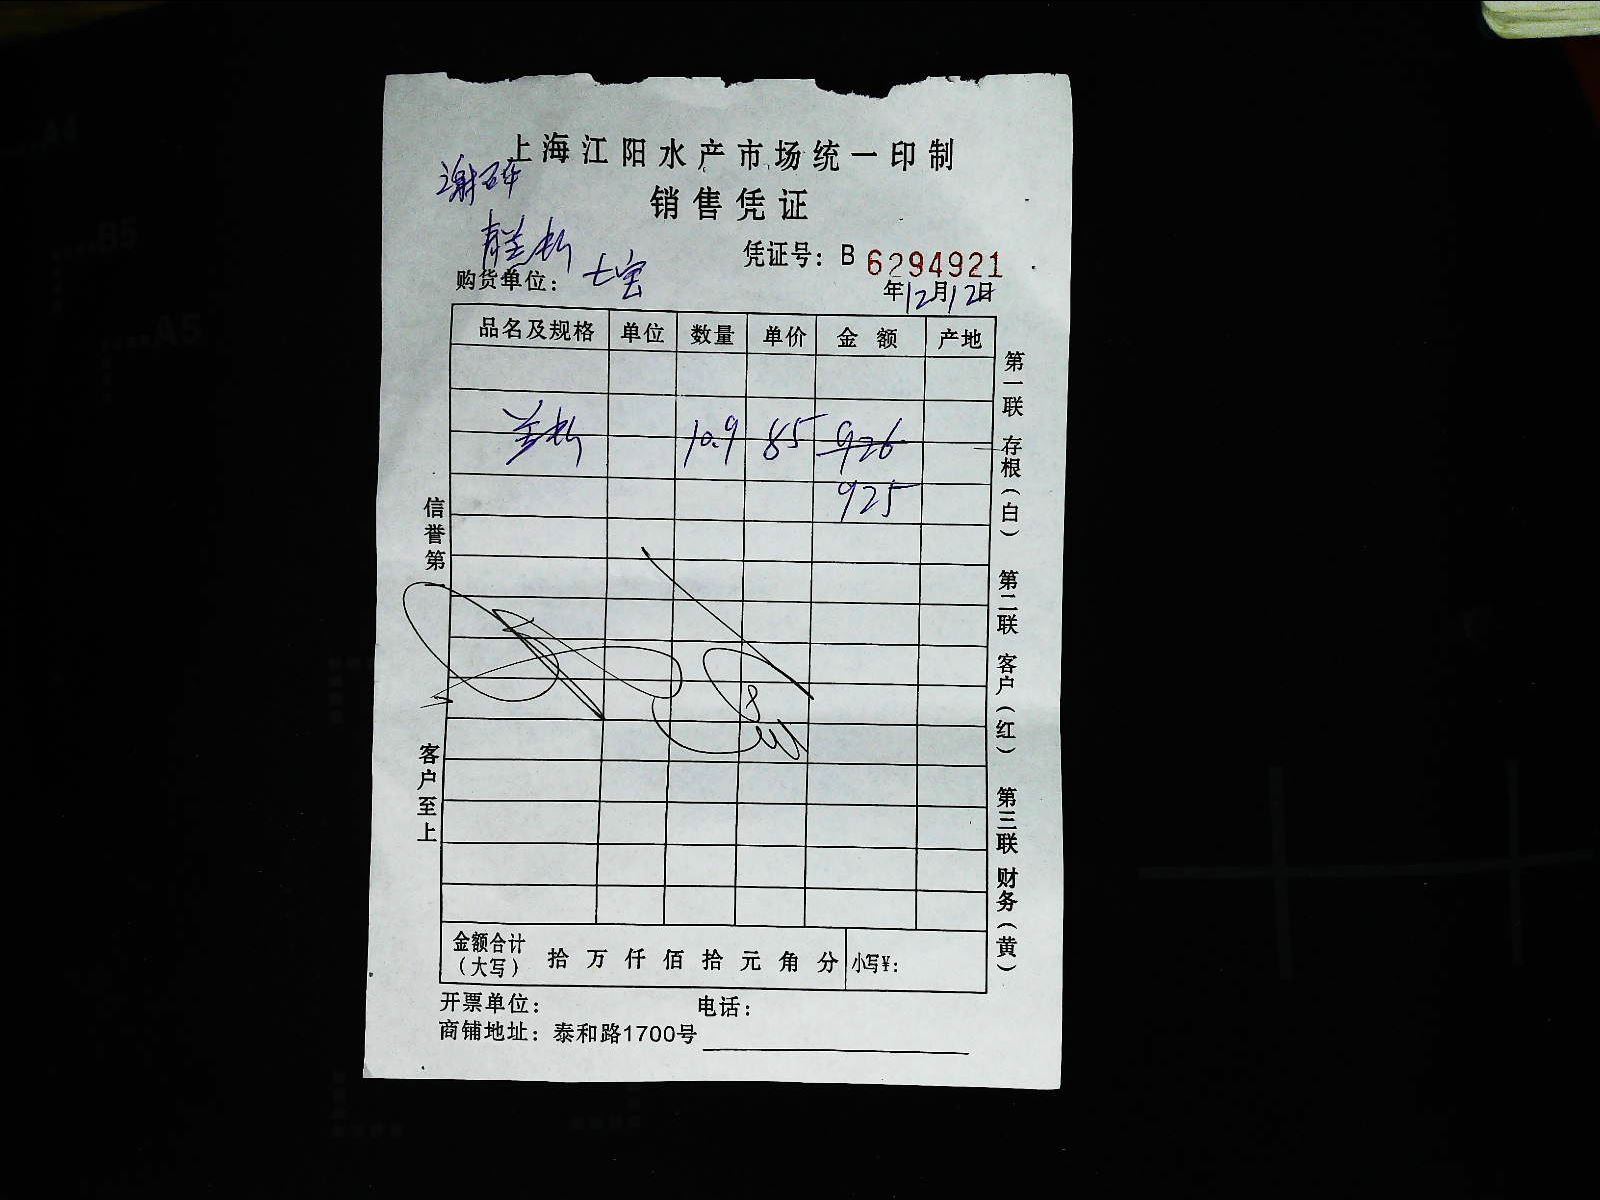 上海江阳水产市场统一印制
销售凭证
凭证号：B 6294921
购货单位：七宝
年12月12日
品名及规格 单位 数量 单价 金额 产地
10.9 85 926
925
信誉第一 客户至上
第一联 存根（白） 第二联 客户（红） 第三联 财务（黄）
金额合计（大写） 拾 万 仟 佰 拾 元 角 分 小写¥：
开票单位： 电话：
商铺地址：泰和路1700号